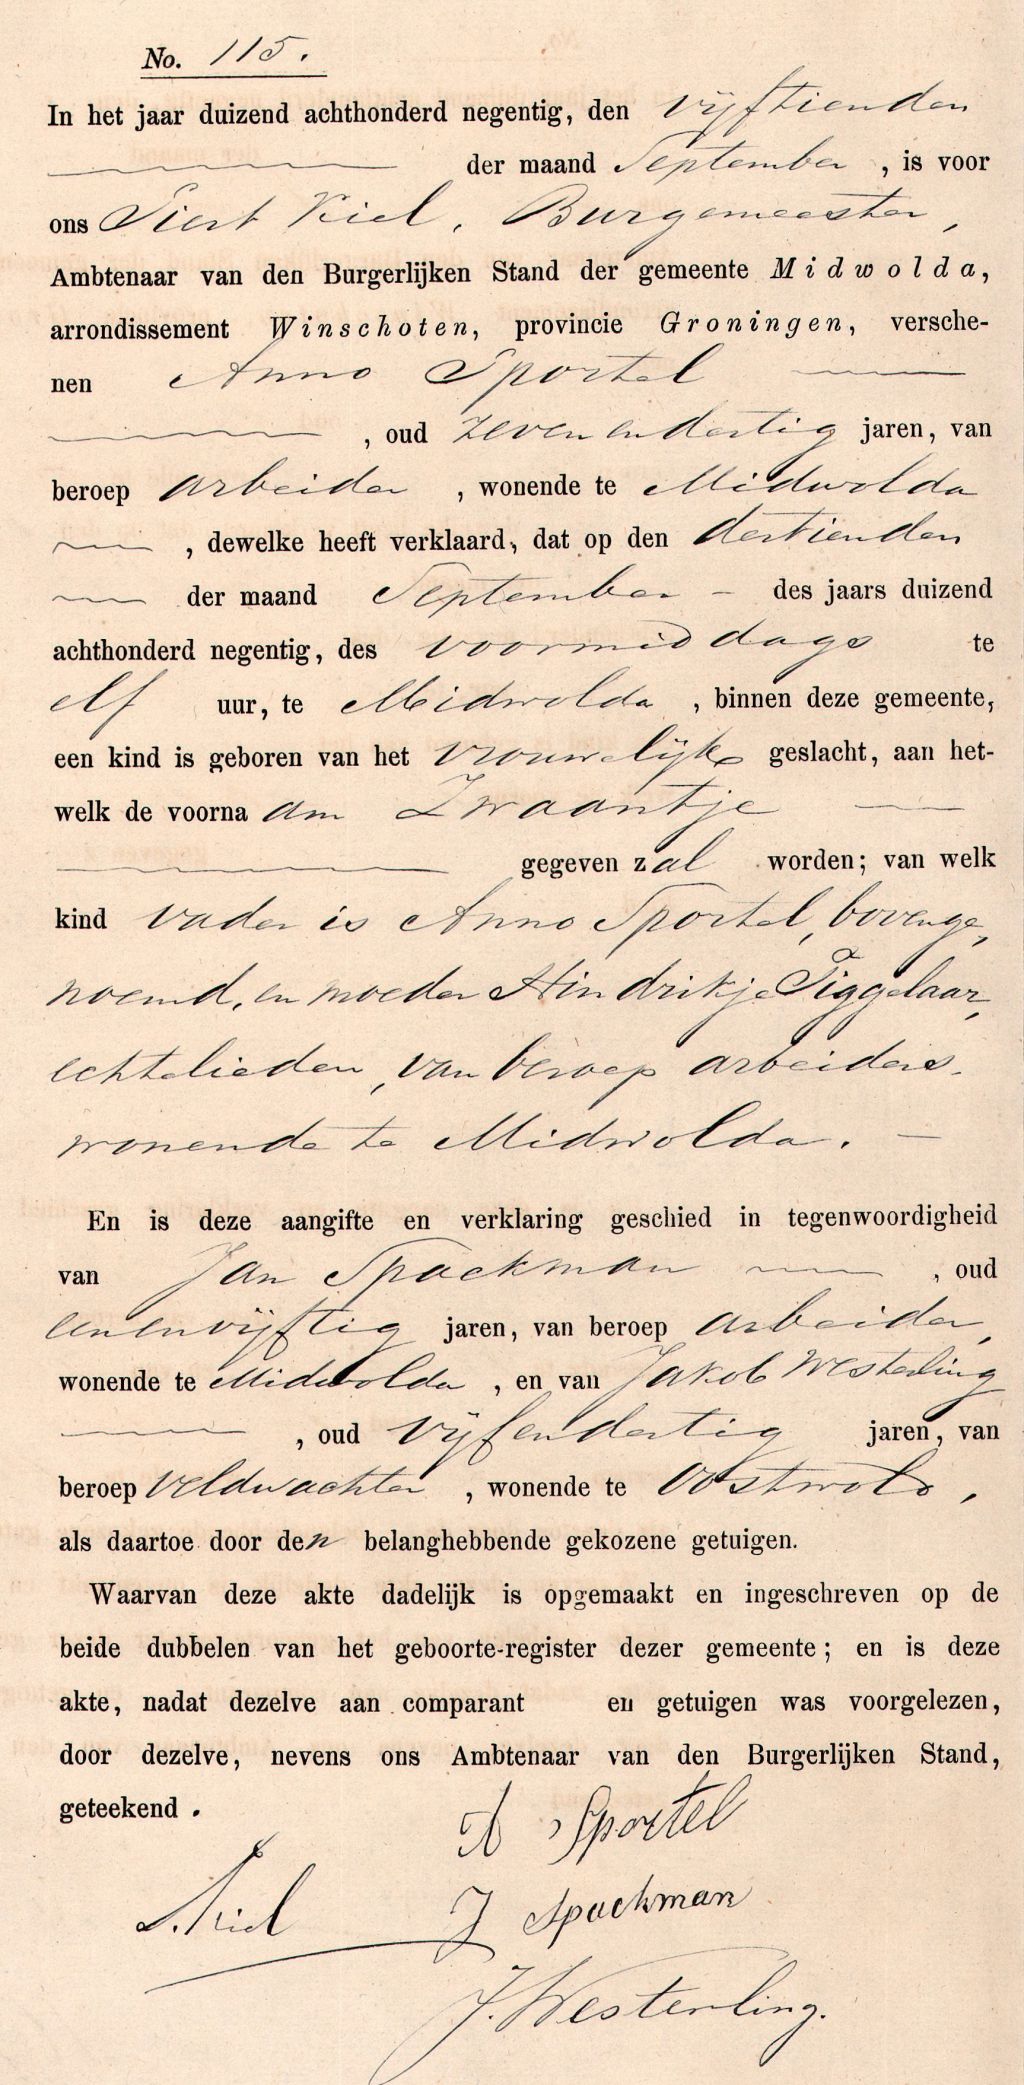 No. 115.
In het jaar duizend achthonderd negentig, den vijftienden
der maand September, is voor
ons Siert Kiel, Burgemeester,
Ambtenaar van den Burgerlijken Stand der gemeente Midwolda,
arrondissement Winschoten, provincie Groningen, versche-
nen Anno Sportel
, oud zevenendertig jaren, van
beroep arbeider, wonende te Midwolda
, dewelke heeft verklaard, dat op den dertienden
der maand September - des jaars duizend
achthonderd negentig, des voormiddags te
elf uur, te Midwolda, binnen deze gemeente,
een kind is geboren van het vrouwelijke geslacht, aan het-
welk de voornaam Zwaantje
gegeven zal worden; van welk
kind vader is Anno Sportel, bovenge-
noemd, en moeder Hindrikje Tiggelaar,
echtelieden, van beroep arbeiders,
wonende te Midwolda. -
En is deze aangifte en verklaring geschied in tegenwoordigheid
van Jan Spackman, oud
eenenvijftig jaren, van beroep arbeider,
wonende te Midwolda, en van Jakob Westerling
, oud vijfendertig jaren, van
beroep veldwachter, wonende te Oostwold,
als daartoe door den belanghebbende gekozene getuigen.
Waarvan deze akte dadelijk is opgemaakt en ingeschreven op de
beide dubbelen van het geboorte-register dezer gemeente; en is deze
akte, nadat dezelve aan comparant en getuigen was voorgelezen,
door dezelve, nevens ons Ambtenaar van den Burgerlijken Stand,
geteekend.
A Sportel
S. Kiel
J Spackman
J. Westerling.